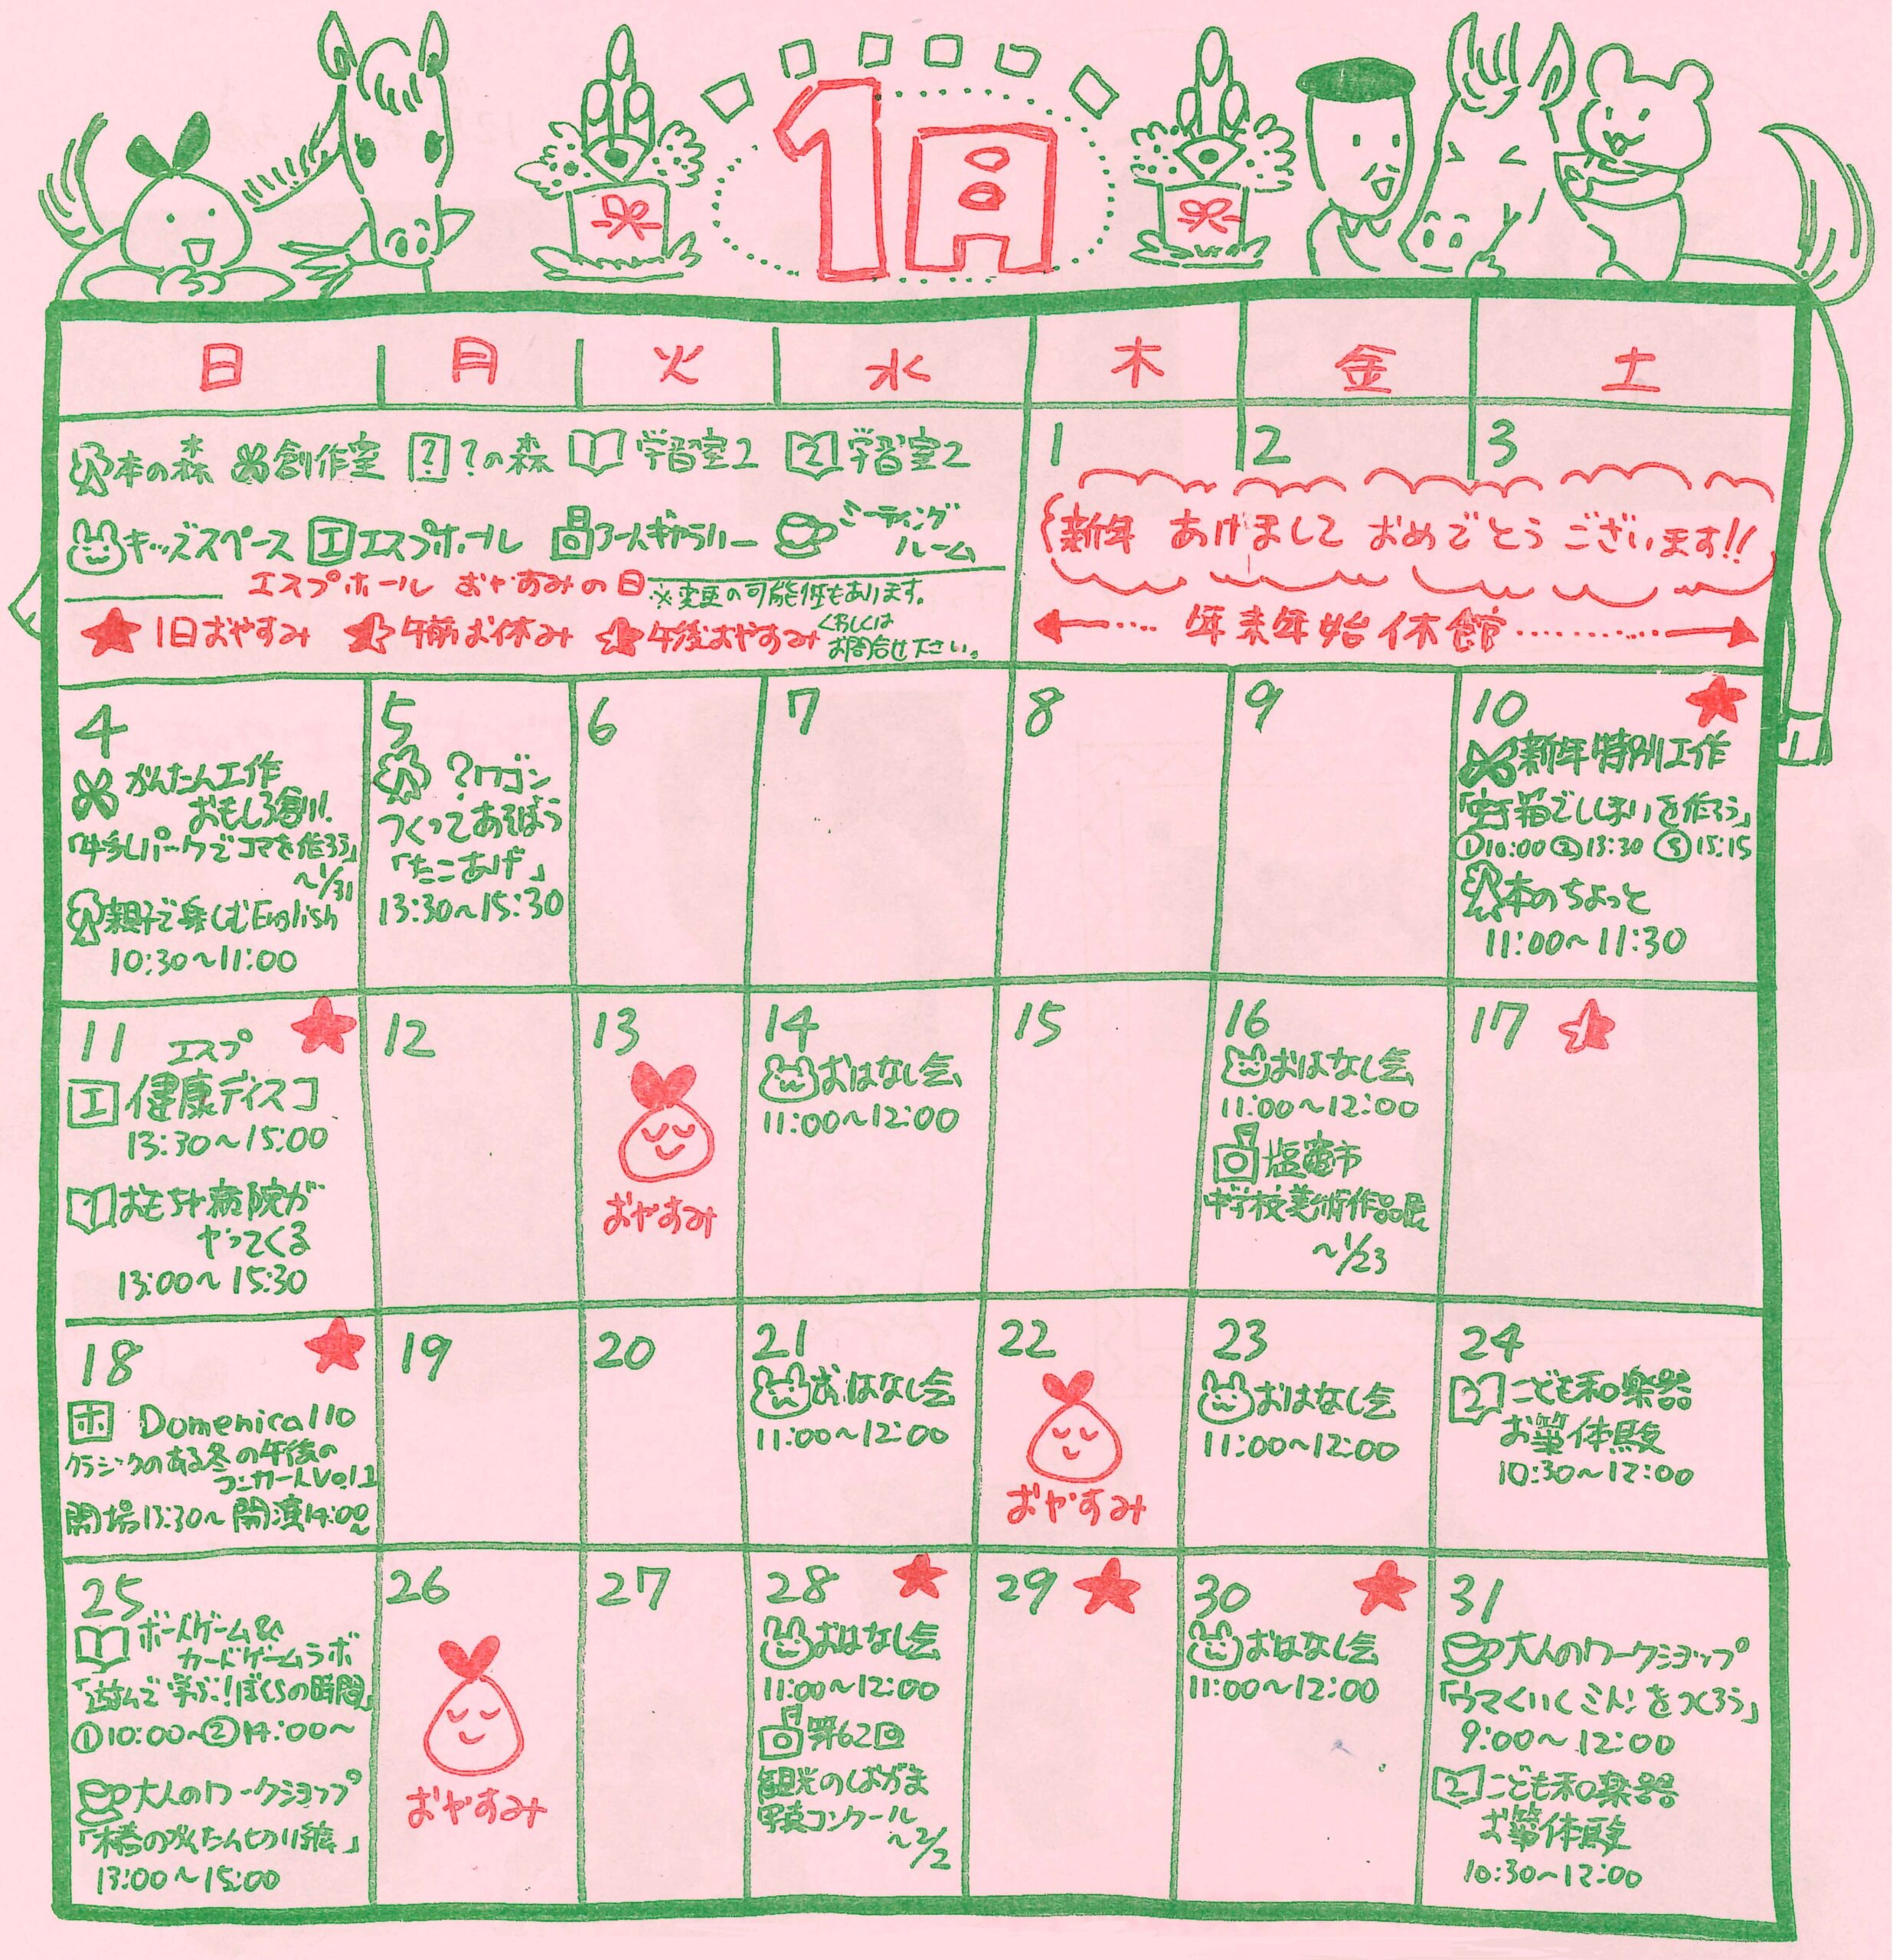 1月
日 月 火 水 木 金 土
本の森 創作室 ? ?の森 1 学習室1 2 学習室2
キッズスペース エ エスプホール アートギャラリー ミーティングルーム
エスプホール おやすみの日 ※変更の可能性もあります。
★1日おやすみ 午前お休み 午後おやすみ くわしくはお問合せ下さい。
1 2 3
新年 あけまして おめでとう ございます!!
←・・・ 年末年始休館 ・・・・・・→
4
かんたん工作
おもしろ創り!
「牛乳パックでコマを作ろう」
～1/31
親子で楽しむEnglish
10:30～11:00
5
?ワゴン
つくってあそぼう
「たこあげ」
13:30～15:30
6
7
8
9
10 ★
新年特別工作
「空き箱でししまいを作ろう」
①10:00 ②13:30 ③15:15
本のちょっと
11:00～11:30
11 ★
エスプ
エ 健康ディスコ
13:30～15:00
1 おもちゃ病院が
やってくる
13:00～15:30
12
13
おやすみ
14
おはなし会
11:00～12:00
15
16
おはなし会
11:00～12:00
塩竈市
中学校美術作品展
～1/23
17
18 ★
ホ Domenica110
クラシックのある冬の午後の
コンサートVol.1
開場13:30～ 開演14:00～
19
20
21
おはなし会
11:00～12:00
22
おやすみ
23
おはなし会
11:00～12:00
24
2 こども和楽器
お箏体験
10:30～12:00
25
1 ボードゲーム&
カードゲームラボ
「遊んで学ぶ!ぼくらの時間」
①10:00～②14:00～
大人のワークショップ
「椿のかんたん切り絵」
13:00～15:00
26
おやすみ
27
28 ★
おはなし会
11:00～12:00
第62回
観光のしおがま
写真コンクール
～2/2
29 ★
30 ★
おはなし会
11:00～12:00
31
大人のワークショップ
「ウマくいくミトンをつくろう」
9:00～12:00
2 こども和楽器
お箏体験
10:30～12:00